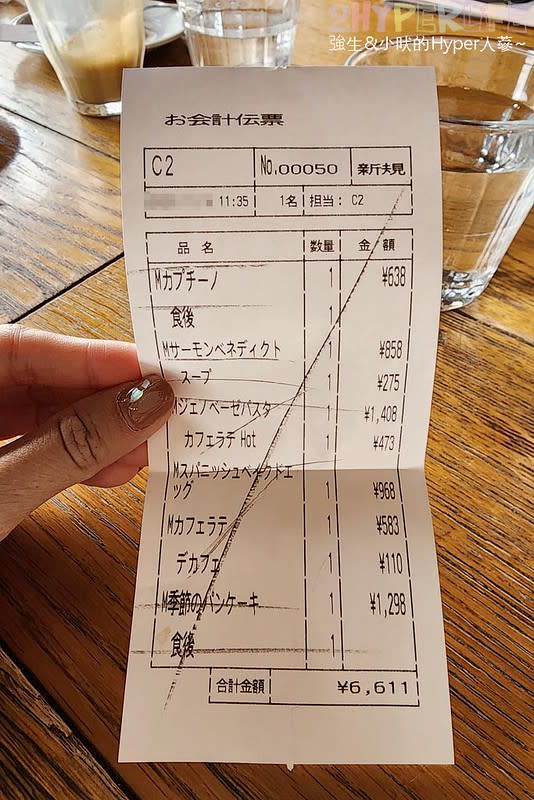 2HYPERLIFE
強生&小吠的Hyper人蔘~
お会計伝票
C2 No.00050 新規
11:35 1名 担当: C2
品 名 数量 金 額
Mカプチーノ 1 ¥638
食後 1
Mサーモンベネディクト 1 ¥858
スープ 1 ¥275
Mジェノベーゼパスタ 1 ¥1,408
カフェラテ Hot 1 ¥473
Mスパニッシュベイクドエ
ッグ 1 ¥968
Mカフェラテ 1 ¥583
デカフェ 1 ¥110
M季節のパンケーキ 1 ¥1,298
食後 1
合計金額 ¥6,611